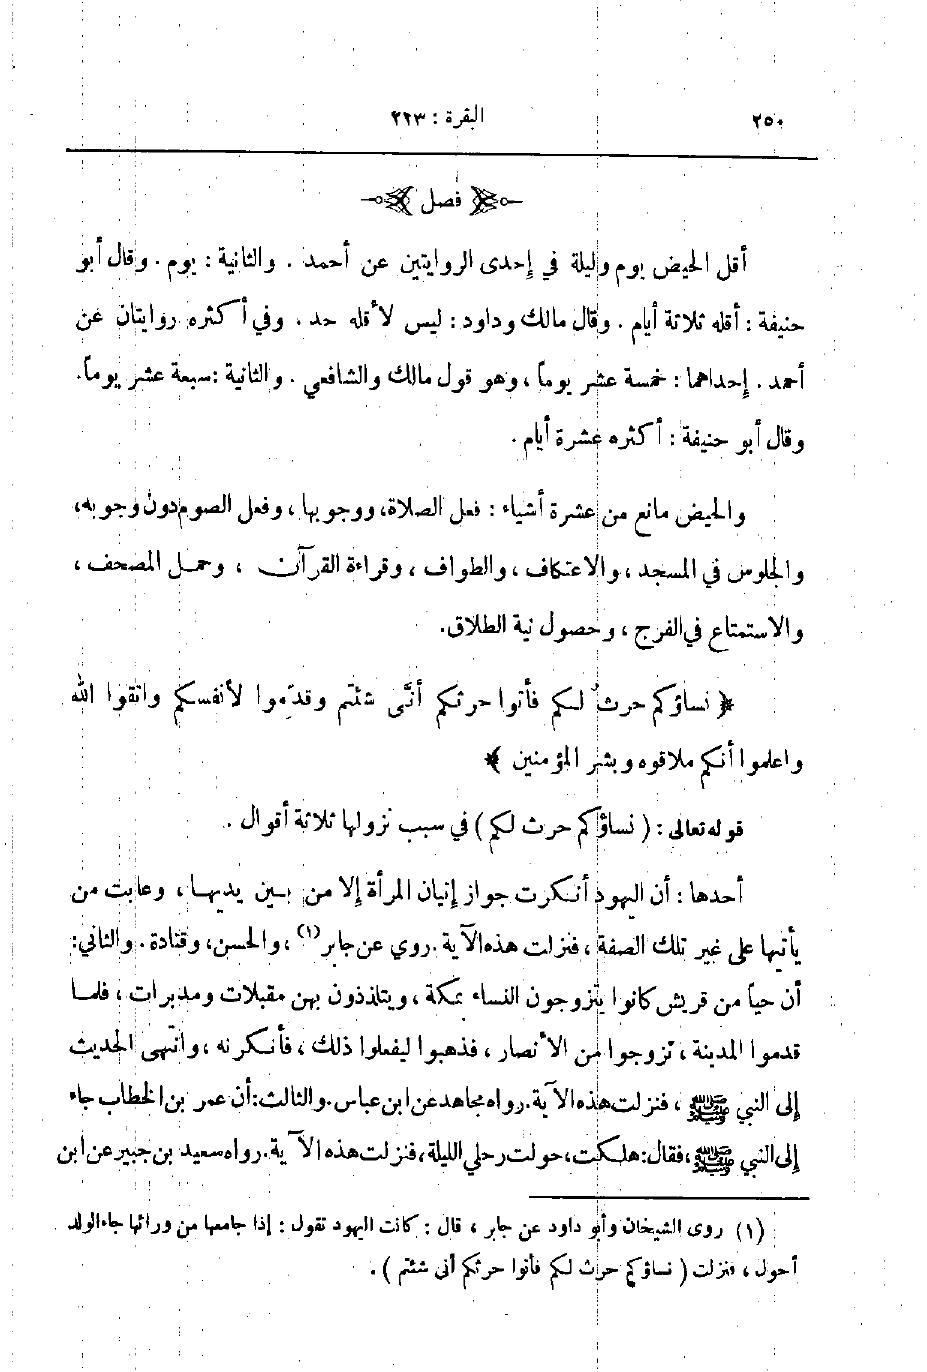 ٢٥٠ البقرة : ٢٢٣
فصل
أقل الحيض يوم وليلة في إحدى الروايتين عن أحمد . والثانية : يوم . وقال أبو
حنيفة : أقله ثلاثة أيام . وقال مالك وداود : ليس لأقله حد . وفي أكثره روايتان عن
أحمد . إحداهما : خمسة عشر يوماً ، وهو قول مالك والشافعي . والثانية : سبعة عشر يوماً .
وقال أبو حنيفة : أكثره عشرة أيام .
والحيض مانع من عشرة أشياء : فعل الصلاة، ووجوبها ، وفعل الصوم دون وجوبه،
والجلوس في المسجد ، والاعتكاف ، والطواف ، وقراءة القرآن ، وحمل المصحف ،
والاستمتاع في الفرج ، وحصول نية الطلاق.
﴿ نساؤكم حرث لكم فأتوا حرثكم أنَّى شئتم وقدّموا لأنفسكم واتقوا الله
واعلموا أنكم ملاقوه وبشر المؤمنين ﴾
قوله تعالى : ( نساؤكم حرث لكم ) في سبب نزولها ثلاثة أقوال .
أحدها : أن اليهود أنكرت جواز إتيان المرأة إلا من بين يديها ، وعابت من
يأتيها على غير تلك الصفة ، فنزلت هذه الآية . روي عن جابر (١) ، والحسن، وقتادة . والثاني :
أن حياً من قريش كانوا يتزوجون النساء بمكة ، ويتلذذون بهن مقبلات ومدبرات ، فلما
قدموا المدينة ، تزوجوا من الأنصار ، فذهبوا ليفعلوا ذلك ، فأنكرنه ، وانتهى الحديث
إلى النبي ﷺ ، فنزلت هذه الآية . رواه مجاهد عن ابن عباس . والثالث : أن عمر بن الخطاب جاء
إلى النبي ﷺ ، فقال : هلكت ، حولت رحلي الليلة ، فنزلت هذه الآية . رواه سعيد بن جبير عن ابن
(١) روى الشيخان وأبو داود عن جابر ، قال : كانت اليهود تقول : إذا جامعها من ورائها جاء الولد
أحول ، فنزلت ( نساؤكم حرث لكم فأتوا حرثكم أنى شئتم ) .